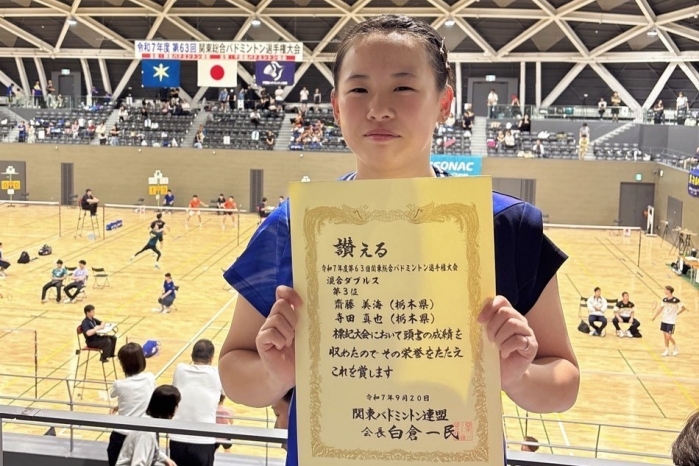 令和7年度 第63回 関東総合バドミントン選手権大会
讃える
令和7年度第63回関東総合バドミントン選手権大会
混合ダブルス
第3位
齋藤 美海(栃木県)
寺田 真也(栃木県)
標記大会において頭書の成績を
収めたので その栄誉をたたえ
これを賞します
令和7年9月20日
関東バドミントン連盟
会長 白倉一民